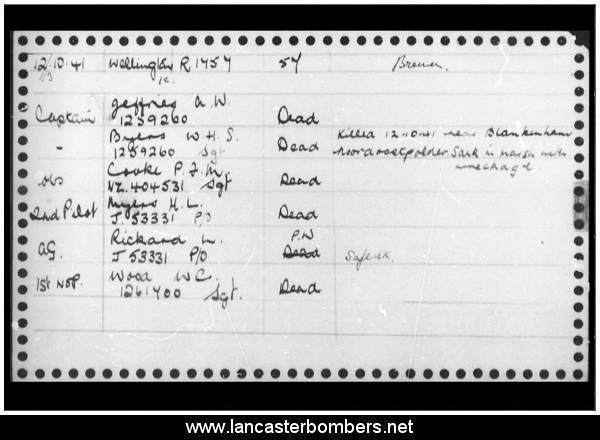 12/10.41 Wellington R 1757 57 Bremen.
13 1c.
Jeffries A. W.
Captain 1259260 Dead
Byers W. H. S. Killed 12-10-41 near Blankenham
- 1259260 Sgt Dead Noordoostpolder Sank in marsh with
Cooke P. J. M. wreckage
obs NZ.404531 Sgt Dead
Myers H. L.
2nd Pilot J.53331 P/O Dead
Rickard L. P.W
AG. J 53331 P/O Dead Safe
Wood W C.
1st WOP. 1261400 Sgt. Dead
www.lancasterbombers.net